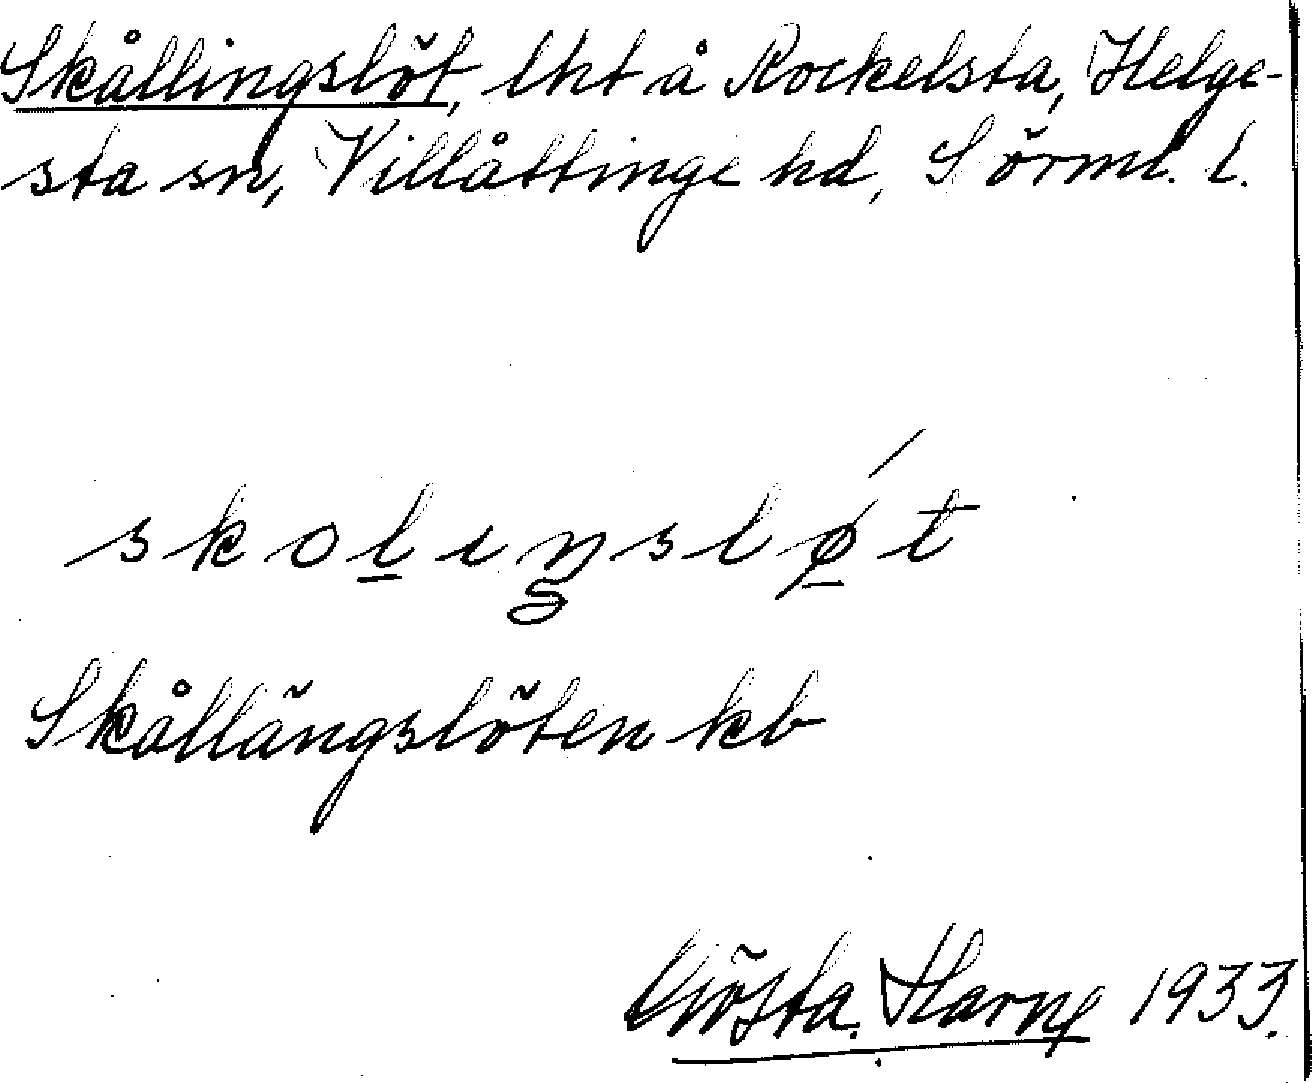 Skållingslöt, lht å Rockelsta, Helge-
sta sn, Villåttinge hd, Sörml. l.
skolıŋsløt
Skållängslöten kb
Gösta Harne 1933.